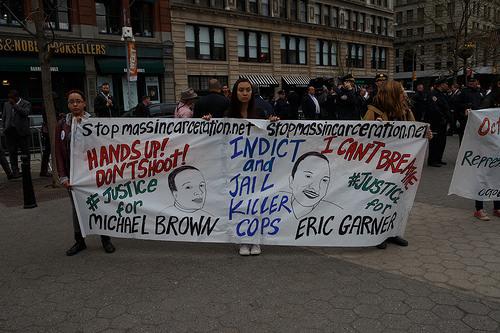 & NOBLE BOOKSELLERS
stopmassincarceration.net stopmassincarceration.net
HANDS UP!
DON'T SHOOT!
#JUSTICE
for
MICHAEL BROWN
INDICT
and
JAIL
KILLER
COPS
I CAN'T BREATHE
#JUSTICE
for
ERIC GARNER
Oct
Repres